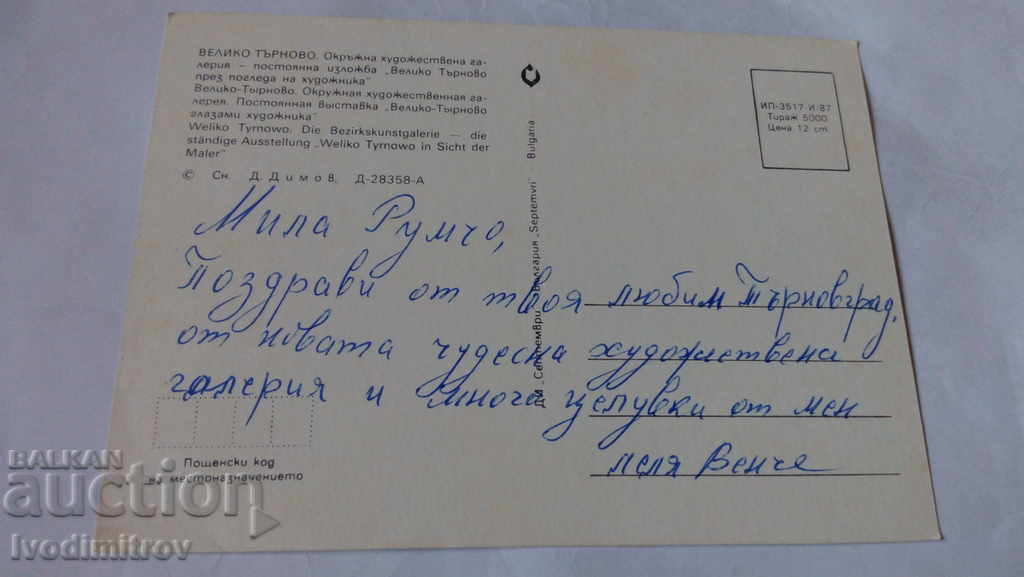 ВЕЛИКО ТЪРНОВО. Окръжна художествена га-
лерия – постоянна изложба „Велико Търново
през погледа на художника"
Велико-Тырново. Окружная художественная га-
лерея. Постоянная выставка „Велико-Тырново
глазами художника"
Weliko Tyrnowo. Die Bezirkskunstgalerie — die
ständige Ausstellung „Weliko Tyrnowo in Sicht der
Maler"
© Сн. Д. Димов, Д-28358-А
ДИ „Септември" България „Septemvri" Bulgaria
ИП-3517-И-87
Тираж 5000
Цена 12 ст.
Мила Румчо,
Поздрави от твоя любим Търновград,
от новата чудесна художествена
галерия и много целувки от мен
леля Венче
Пощенски код
на местоназначението
BALKAN
auction
Ivodimitrov